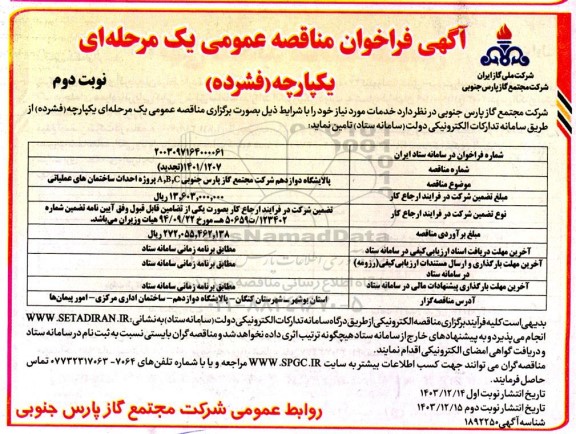 آگهی فراخوان مناقصه عمومی یک مرحله‌ای
یکپارچه(فشرده)
نوبت دوم
شرکت ملی گاز ایران
شرکت مجتمع گاز پارس جنوبی
شرکت مجتمع گاز پارس جنوبی در نظر دارد خدمات مورد نیاز خود را با شرایط ذیل بصورت برگزاری مناقصه عمومی یک مرحله‌ای یکپارچه (فشرده) از
طریق سامانه تدارکات الکترونیکی دولت(سامانه ستاد) تامین نماید:
شماره فراخوان در سامانه ستاد ایران ۲۰۰۳۰۹۷۱۶۴۰۰۰۰۶۱
شماره مناقصه ۱۴۰۱/۱۲۰۷(تجدید)
موضوع مناقصه پروژه احداث ساختمان های عملیاتی A,B,C پالایشگاه دوازدهم شرکت مجتمع گاز پارس جنوبی
مبلغ تضمین شرکت در فرایند ارجاع کار ۱۳,۶۰۳,۰۰۰,۰۰۰ ریال
نوع تضمین شرکت در فرایند ارجاع کار تضمین شرکت در فرایند ارجاع کار بصورت یکی از تضامین قابل قبول وفق آیین نامه تضمین شماره
۱۲۳۴۰۲/ت۵۰۶۵۹ هـ مورخ ۹۴/۰۹/۲۲ هیات وزیران می‌باشد.
مبلغ برآوردی مناقصه ۲۷۲,۰۵۵,۴۶۲,۱۳۸ ریال
آخرین مهلت دریافت اسناد ارزیابی کیفی در سامانه ستاد مطابق برنامه زمانی سامانه ستاد
آخرین مهلت بارگذاری و ارسال مستندات ارزیابی کیفی(رزومه) در سامانه ستاد مطابق برنامه زمانی سامانه ستاد
آخرین مهلت بارگذاری پیشنهادات مالی در سامانه ستاد مطابق برنامه زمانی سامانه ستاد
آدرس مناقصه گزار استان بوشهر– شهرستان کنگان– پالایشگاه دوازدهم– ساختمان اداری مرکزی– امور پیمان‌ها
بدیهی است کلیه فرآیند برگزاری مناقصه الکترونیکی از طریق درگاه سامانه تدارکات الکترونیکی دولت (سامانه ستاد) به نشانی: WWW.SETADIRAN.IR
انجام می‌پذیرد و به پیشنهادهای خارج از سامانه ستاد هیچگونه ترتیب اثری داده نخواهد شد و مناقصه گران بایستی نسبت به ثبت نام در سامانه ستاد
و دریافت گواهی امضای الکترونیکی اقدام نمایند.
مناقصه گران می توانند جهت کسب اطلاعات بیشتر به سایت WWW.SPGC.IR مراجعه و یا با شماره تلفن‌های ۷۰۶۴- ۰۷۷۳۲۳۱۷۰۶۳ تماس
حاصل فرمایند.
تاریخ انتشار نوبت اول ۱۴۰۳/۱۲/۱۴
تاریخ انتشار نوبت دوم ۱۴۰۳/۱۲/۱۵
شناسه آگهی ۱۸۹۲۲۵۰
روابط عمومی شرکت مجتمع گاز پارس جنوبی